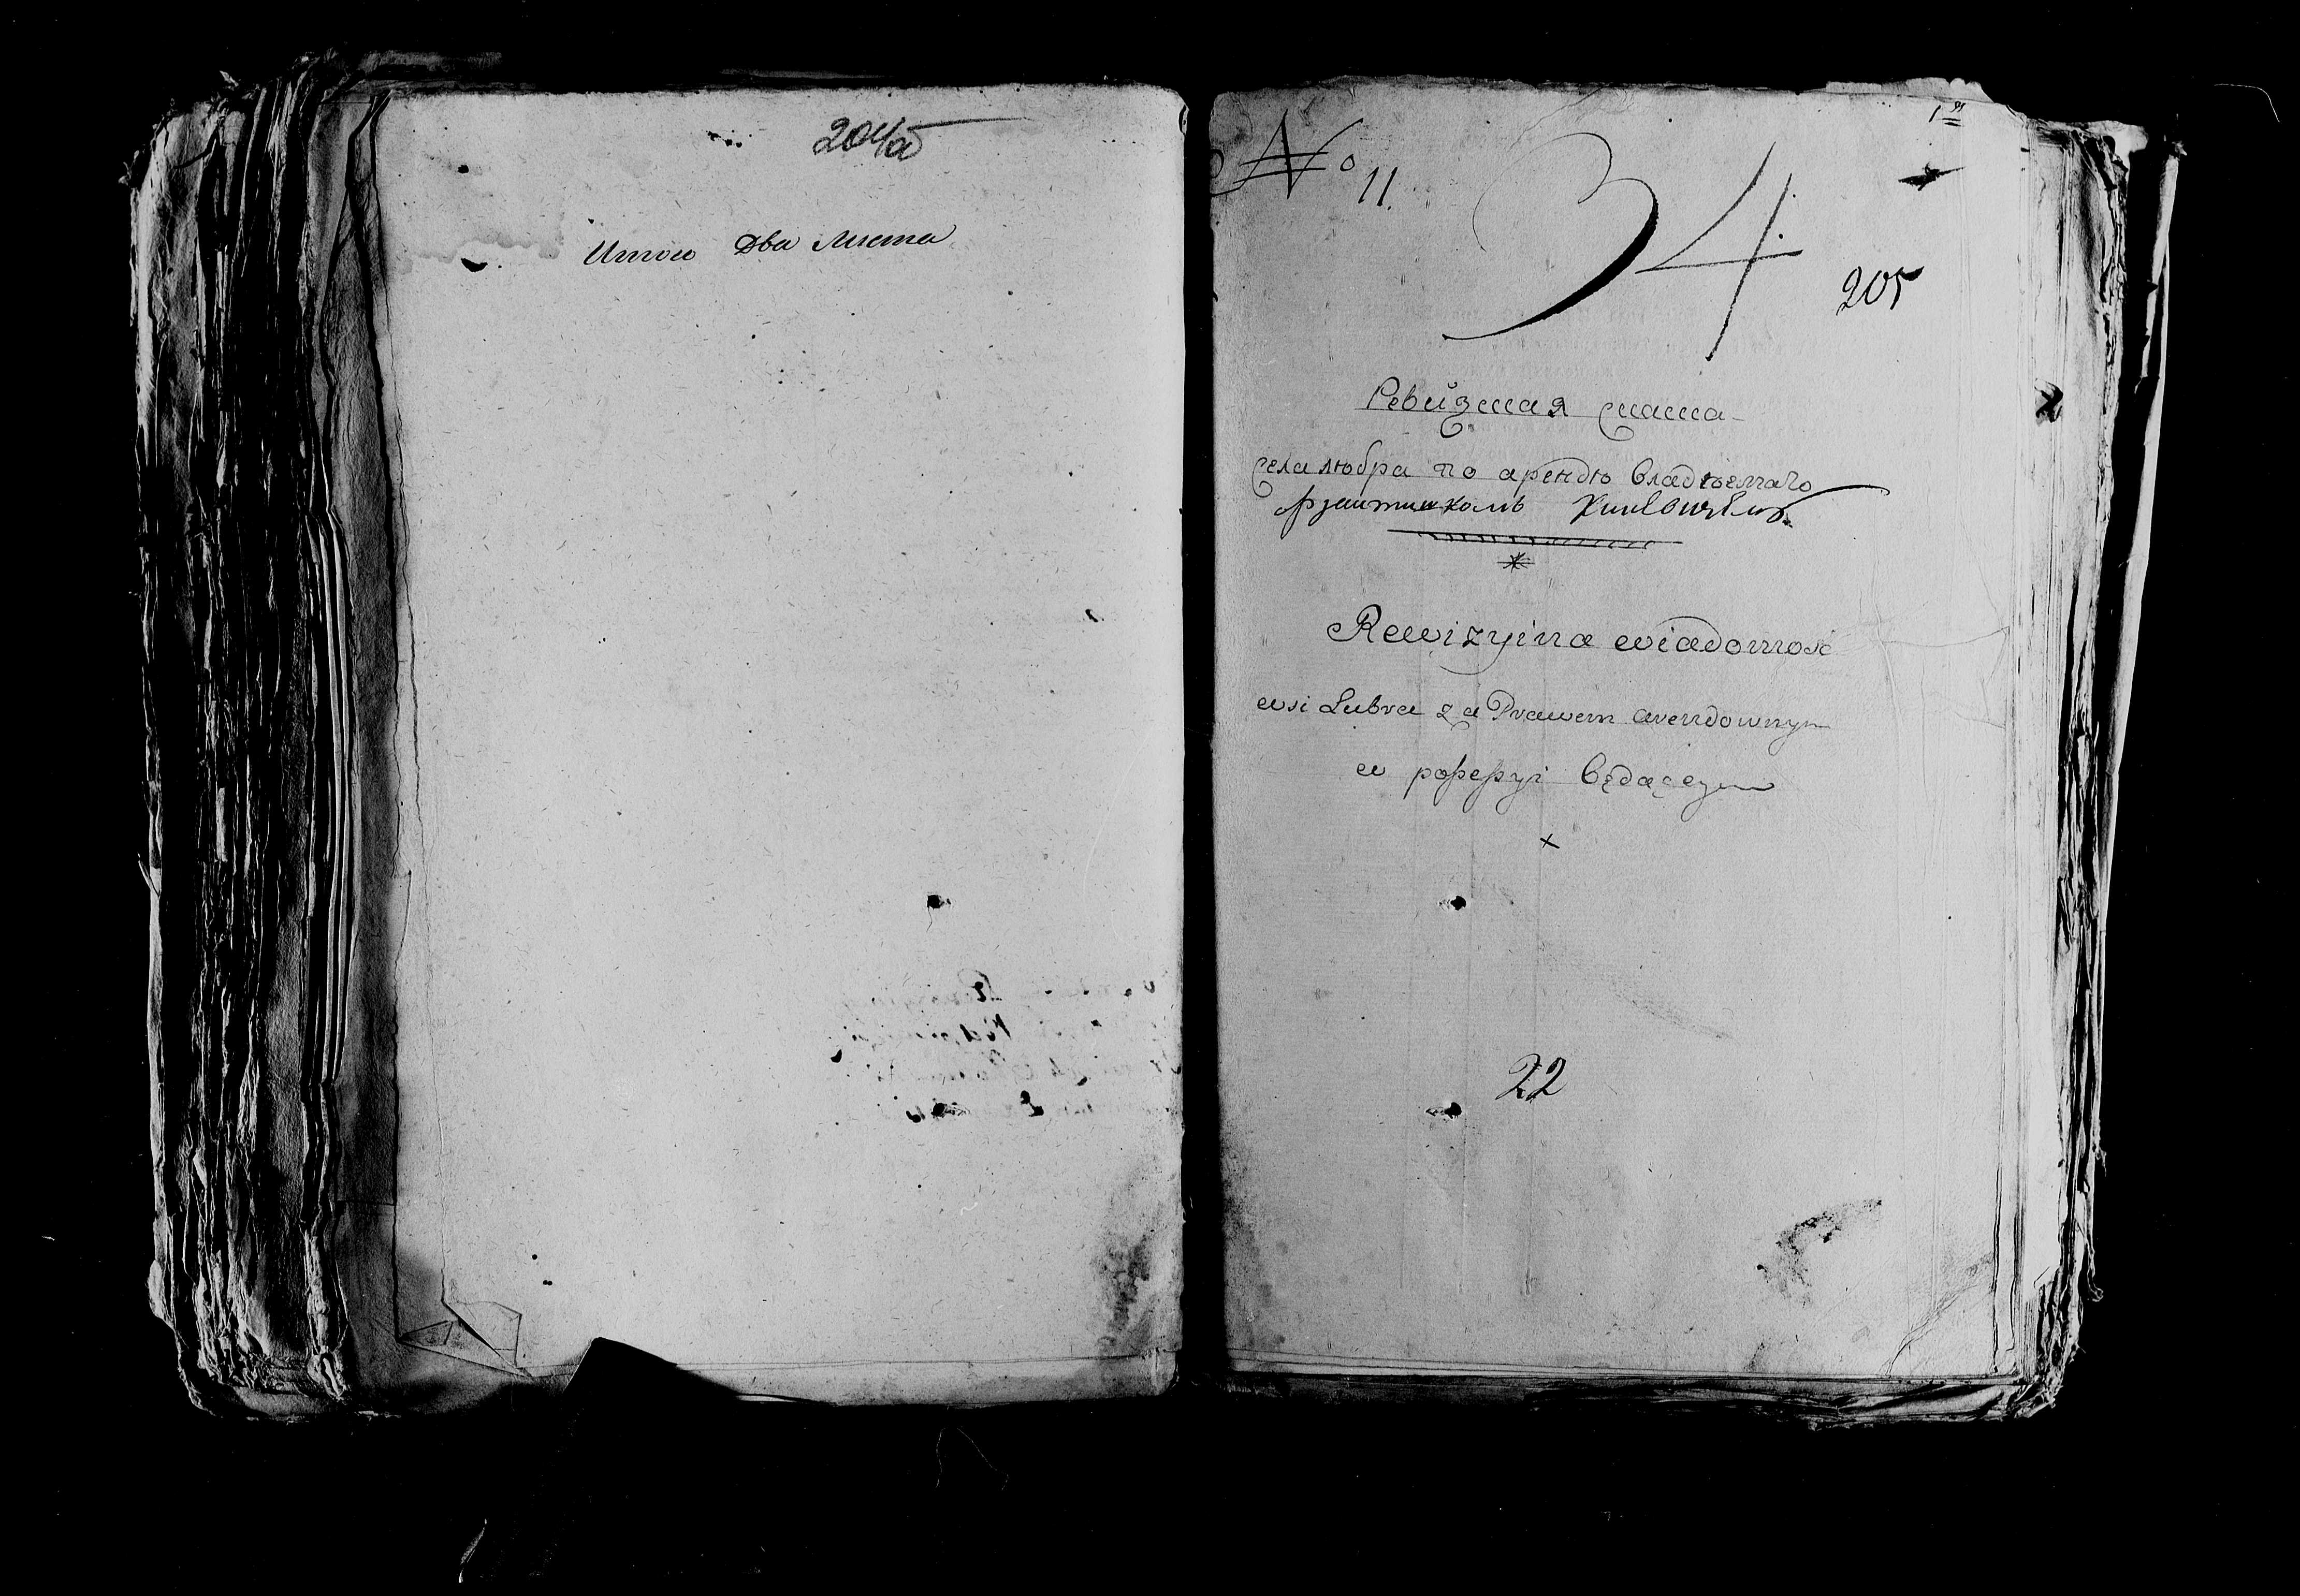 204об
Итого Два Листа
1я
№ 11.
34
205
Ревизская скаска
села любра по арендѣ владѣемаго
Rewizyina wiadomość
wsi Lubra za Prawem arendownym
w possessyi będącym
22